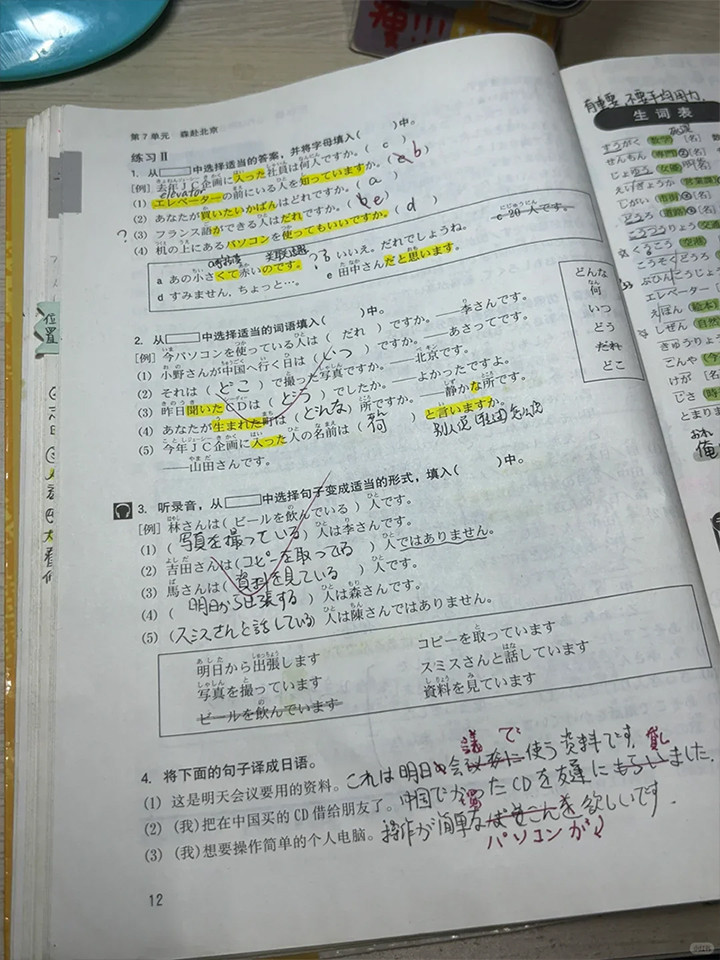 第7单元 森赴北京
练习Ⅱ
1. 从 中选择适当的答案，并将字母填入( )中。
[例] 去年JC企画に入った社員は何人ですか。( c )
elevator
(1) エレベーターの前にいる人を知っていますか。( e b )
(2) あなたが買いたいかばんはどれですか。( a )
(3) フランス語ができる人はだれですか。( b e )
? (4) 机の上にあるパソコンを使ってもいいですか。( d )
a あの小さくて赤いのです。 b いいえ。だれでしょうね。 c 20人です。
d すみません, ちょっと…。 e 田中さんだと思います。
2. 从 中选择适当的词语填入( )中。
[例] 今パソコンを使っている人は( だれ )ですか。——李さんです。
(1) 小野さんが中国へ行く日は( いつ )ですか。——あさってです。
(2) それは( どこ )で撮った写真ですか。——北京です。
(3) 昨日聞いたCDは( どう )でしたか。——よかったですよ。
(4) あなたが生まれた町は( どんな )所ですか。——静かな所です。
(5) 今年JC企画に入った人の名前は( 何 )と言いますか。
——山田さんです。
どんな
何
いつ
どう
だれ
どこ
3. 听录音，从 中选择句子变成适当的形式，填入( )中。
[例] 林さんは( ビールを飲んでいる )人です。
(1) ( 写真を撮っている )人は李さんです。
(2) 吉田さんは( コピーを取ってる )人ではありません。
(3) 馬さんは( 資料を見ている )人です。
(4) ( 明日から出張する )人は森さんです。
(5) (スミスさんと話している)人は陳さんではありません。
明日から出張します コピーを取っています
写真を撮っています スミスさんと話しています
ビールを飲んでいます 資料を見ています
4. 将下面的句子译成日语。
議 で
(1) 这是明天会议要用的资料。これは明日の会议に使う資料です。
貸し
(2) (我)把在中国买的CD借给朋友了。中国でかったCDを友達にもらいました。
買
(3) (我)想要操作简单的个人电脑。操作が簡単なぱそこんを欲しいです.
パソコン が
12
位置
有重要, 不要平均用力.
生词表
すうがく [数学] [名]
せんもん [専門] [名]
じょゆう [女優] [名]
えいぎょうか
じがい [市街]
どうろ [道路]
こうつうりょう [交通
くうこう [空港]
こうそくどうろ
ぶひんこうじょう
エレベーター
えほん [絵本]
しぜん [自然]
きゅうりょう
こんや [今
けが [名
じさ [時
とまりま
おれ
俺